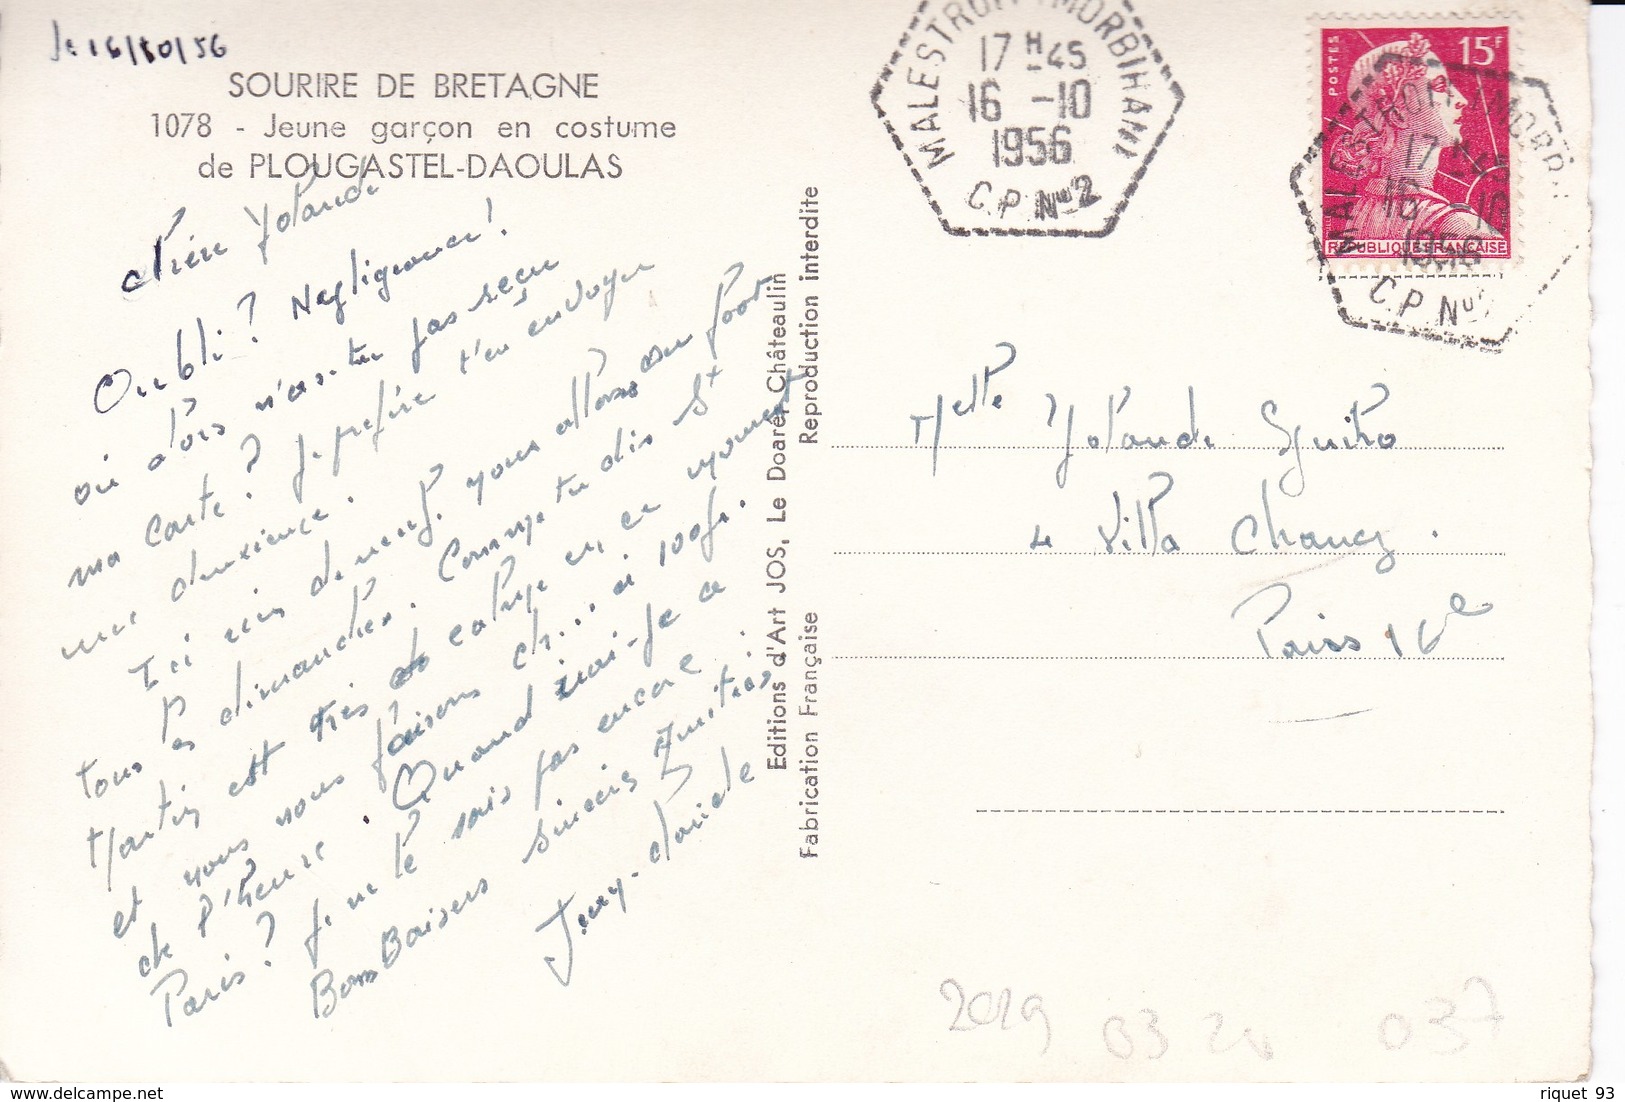 le 16/10/56
SOURIRE DE BRETAGNE
1078 - Jeune garçon en costume
de PLOUGASTEL-DAOULAS
Chère Yolande
Oubli? Negligeance!
ou alors n'as-tu pas recu
ma carte? Je préfère t'en envoyer
une deuxieme.
Ici rien de neuf, nous allons au foot
tous les dimanches. Comme tu dis St
Martin est très en ce moment
et nous nous faisons ch... à 100fr.
de l'heure. Quand irai-je a
Paris? Je ne le sais pas encore.
Bons Baisers sincères Amitiés
Jeny-Claude
Editions d'Art JOS, Le Doaré, Châteaulin
Fabrication Française
Reproduction interdite
MALESTROIT (MORBIHAN)
17 H 45
16 -10
1956
C.P. N° 2
POSTES
15F
REPUBLIQUE FRANÇAISE
MALESTROIT (MORBI
17
16 -10
1956
C.P. N°
Melle Yolande Sguiro
4 Villa Chancy.
Paris 16e
2019 03 20 037
riquet 93